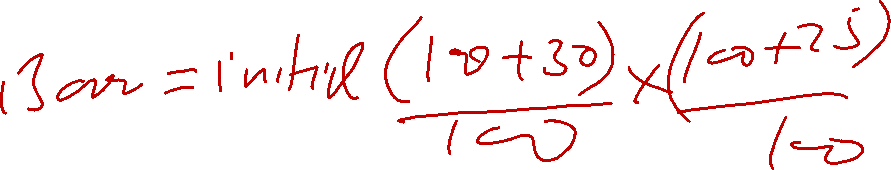 Bar = initial (100+30)/100 × (100+25)/100